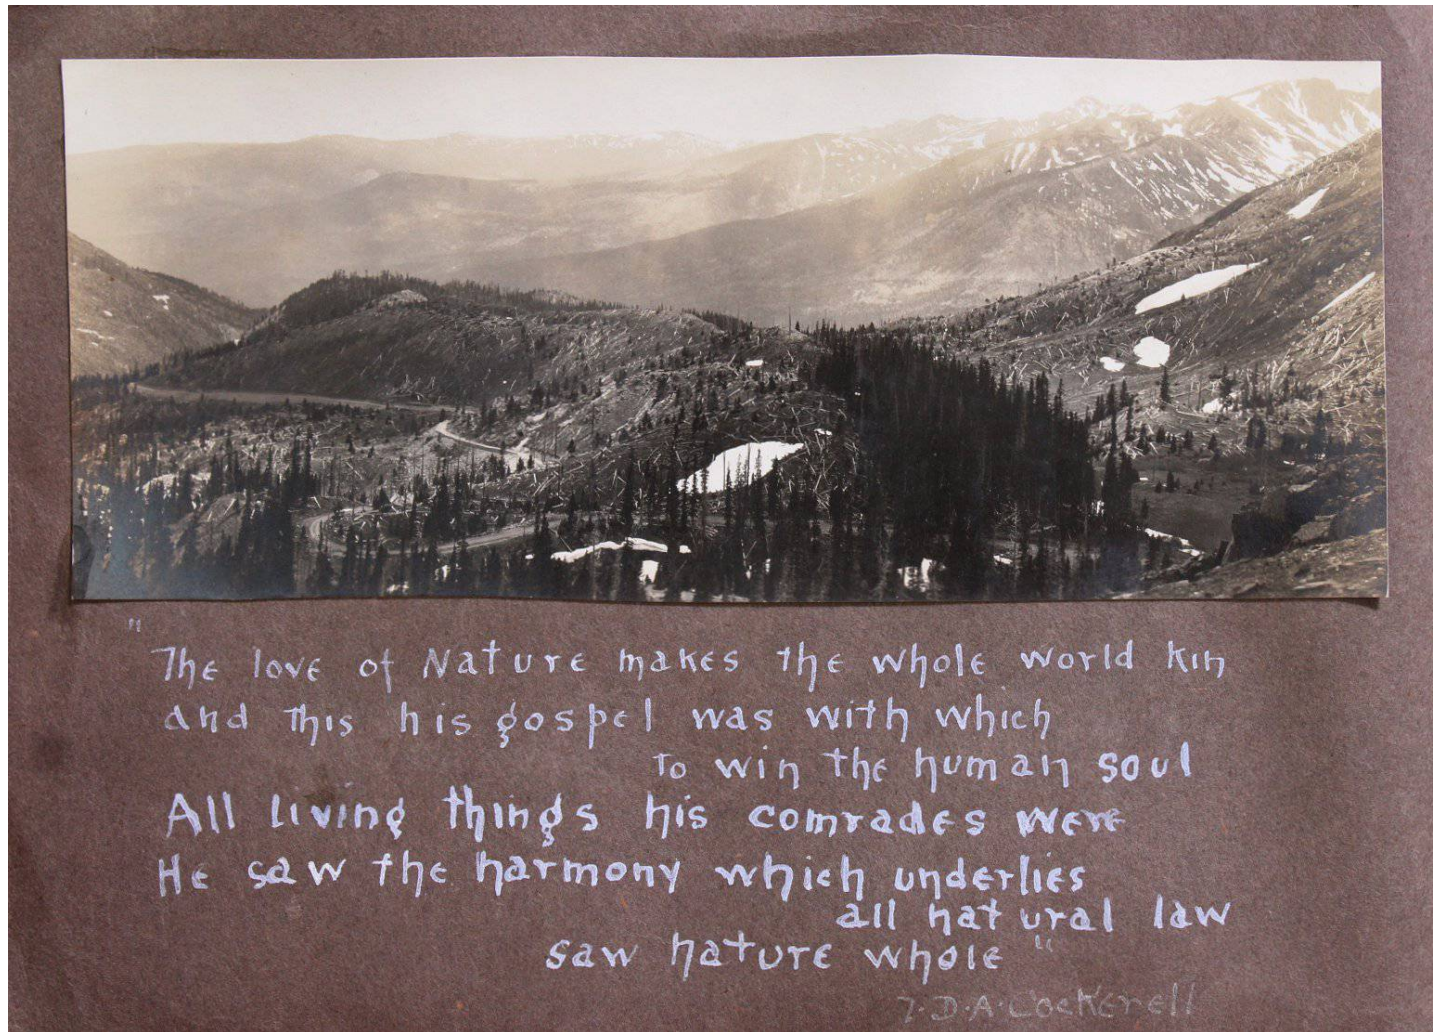 "The love of Nature makes the whole world kin
and this his gospel was with which
to win the human soul
All living things his comrades were
He saw the harmony which underlies
all natural law
saw nature whole"
T.D.A. Cockerell